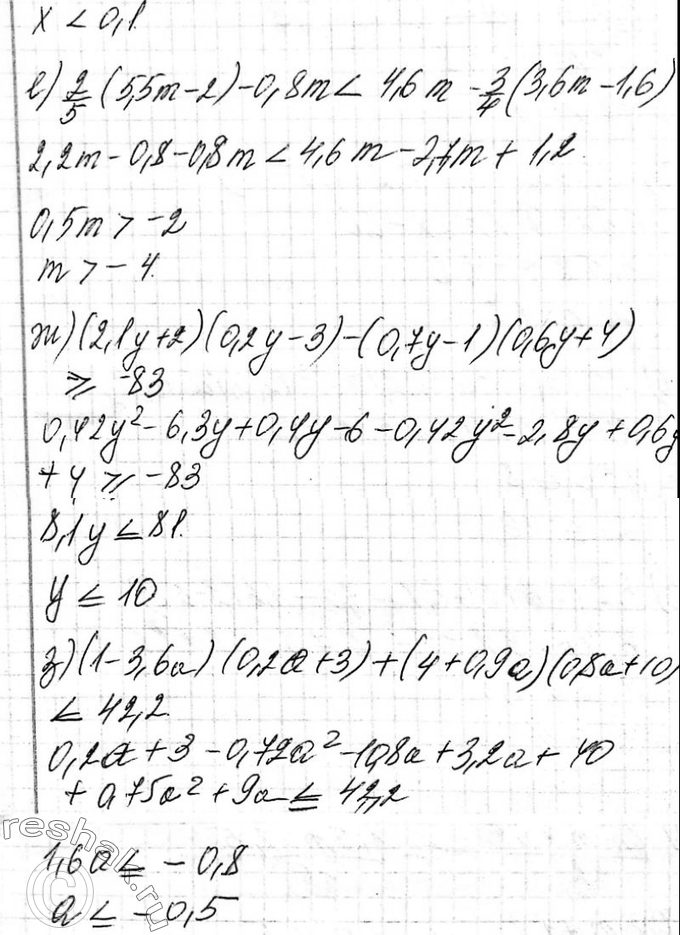 x < 0,1.
е) 2/5 (5,5m-2)-0,8m < 4,6m - 3/4 (3,6m-1,6)
2,2m-0,8-0,8m < 4,6m-2,7m+1,2.
0,5m > -2
m > -4.
ж) (2,1y+2)(0,2y-3)-(0,7y-1)(0,6y+4)
≥ -83
0,42y²-6,3y+0,4y-6-0,42y²-2,8y+0,6y
+4 ≥ -83
8,1y ≤ 81.
y ≤ 10
з) (1-3,6a)(0,2a+3)+(4+0,9a)(0,8a+10)
≤ 42,2.
0,2a+3-0,72a²-10,8a+3,2a+40
+0,75a²+9a ≤ 42,2
1,6a ≤ -0,8
a ≤ -0,5
reshak.ru